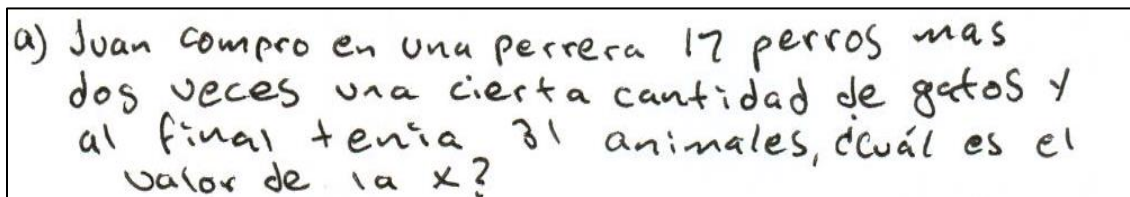 a) Juan compro en una perrera 17 perros mas
dos veces una cierta cantidad de gatos y
al final tenia 31 animales, ¿cuál es el
valor de la x?